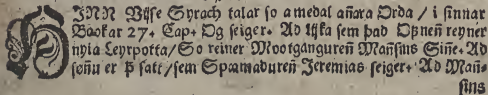 HINN Vijse Syrach talar so a medal añara Orda / i sinnar
Bookar 27. Cap. Og seiger. Ad lijka sem þad Opneñ reyner
nyia Leyrpotta / So reiner Mootgangureñ Mañsins Siñe. Ad
soñu er þ satt / sem Spaamadureñ Jeremias seiger. Ad Mañ-
sins